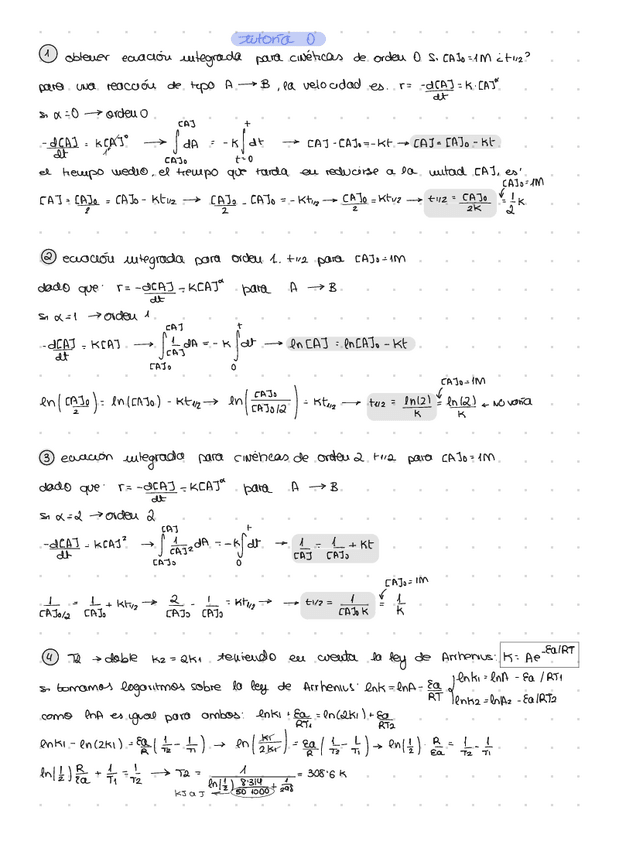 tutoría 0
① obtener ecuación integrada para cinéticas de orden 0 si [A]₀=1M ¿t₁/₂?
para una reacción de tipo A → B, la velocidad es r = -d[A]/dt = K·[A]^α
si α=0 → orden 0
-d[A]/dt = K[A]⁰ → ∫_{[A]₀}^{[A]} dA = -K ∫_{t=0}^{t} dt → [A]-[A]₀ = -Kt → [A] = [A]₀ - Kt
el tiempo medio, el tiempo que tarda en reducirse a la mitad [A], es:
[A] = [A]₀/2 = [A]₀ - Kt₁/₂ → [A]₀/2 - [A]₀ = -Kt₁/₂ → [A]₀/2 = Kt₁/₂ → t₁/₂ = [A]₀/2K = 1/2 K. [A]₀=1M
② ecuación integrada para orden 1. t₁/₂ para [A]₀=1M
dado que: r = -d[A]/dt = K[A]^α para A → B
si α=1 → orden 1
-d[A]/dt = K[A] → ∫_{[A]₀}^{[A]} 1/[A] dA = -K ∫_{0}^{t} dt → ln[A] = ln[A]₀ - Kt
ln([A]₀/2) = ln([A]₀) - Kt₁/₂ → ln([A]₀/[A]₀/2) = Kt₁/₂ → t₁/₂ = ln(2)/K = ln(2)/K ← NO varía [A]₀=1M
③ ecuación integrada para cinéticas de orden 2 t₁/₂ para [A]₀=1M.
dado que: r = -d[A]/dt = K[A]^α para A → B
si α=2 → orden 2
-d[A]/dt = K[A]² → ∫_{[A]₀}^{[A]} 1/[A]² dA = -K ∫_{0}^{t} dt → 1/[A] = 1/[A]₀ + Kt
1/[A]₀/2 = 1/[A]₀ + Kt₁/₂ → 2/[A]₀ - 1/[A]₀ = Kt₁/₂ → → t₁/₂ = 1/[A]₀K = 1/K [A]₀=1M
④ T2 → doble K2 = 2K1 teniendo en cuenta la ley de Arrhenius: K = Ae^{-Ea/RT}
si tomamos logaritmos sobre la ley de Arrhenius: lnK = lnA - Ea/RT { lnK1 = lnA - Ea/RT1
lnK2 = lnA2 - Ea/RT2
como lnA es igual para ambos: lnK1 + Ea/RT1 = ln(2K1) + Ea/RT2
lnK1 - ln(2K1) = Ea/R (1/T2 - 1/T1) → ln(K1/2K1) = Ea/R (1/T2 - 1/T1) → ln(1/2) · R/Ea = 1/T2 - 1/T1
ln(1/2) R/Ea + 1/T1 = 1/T2 → T2 = 1/(ln(1/2) 8'314/50·1000 + 1/298) = 308'6 K
KJ a J